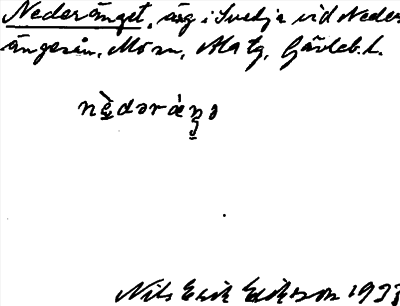 Nederänget, äng i Svedja vid Neder-
ängesån, Mo sn, Ala tg, Gävleb. l.
nèdəràŋə
Nils Erik Eriksson 1933